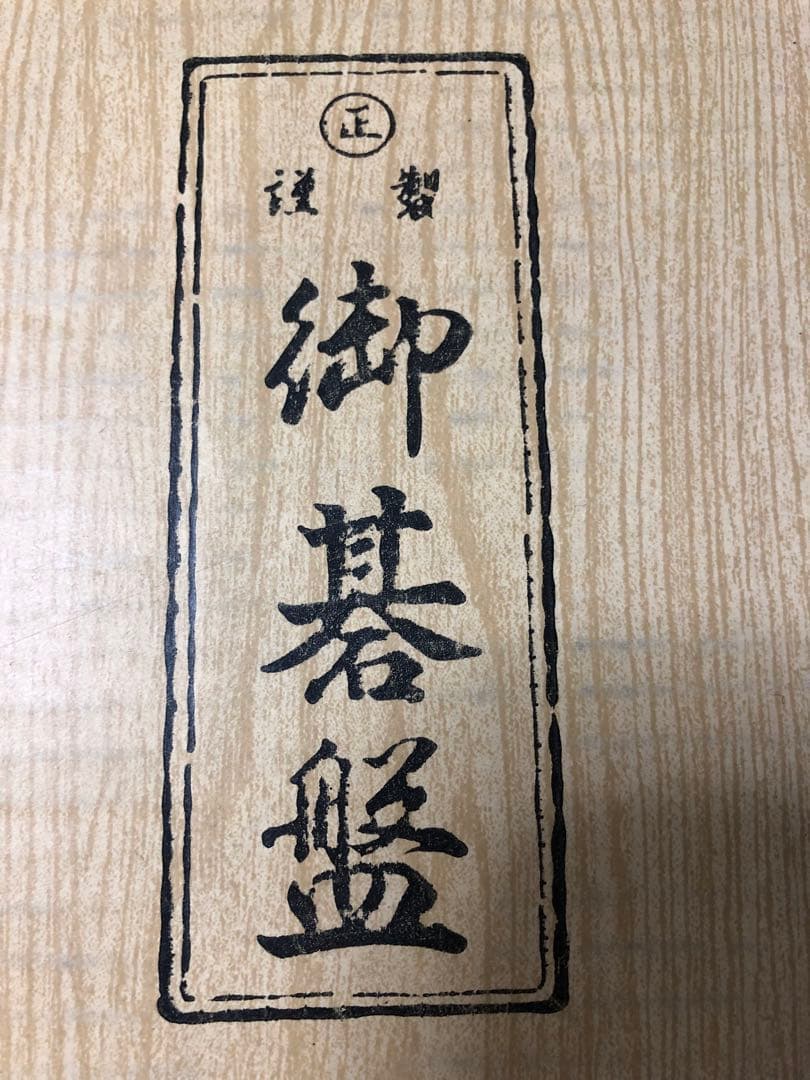 正
謹製
御碁盤